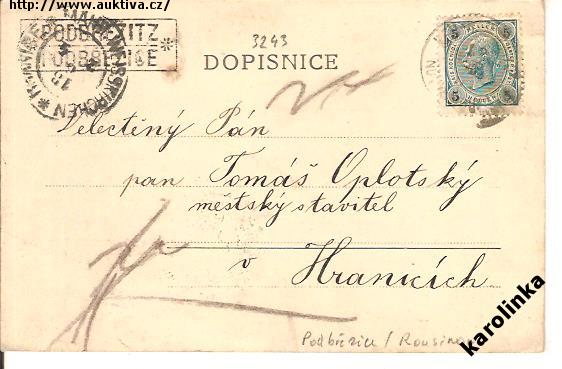 http://www.auktiva.cz/
PODBŘEZICE
3243
DOPISNICE
5 5
5 5
Velectěný Pán
pan Tomáš Oplotský
městský stavitel
v Hranicích
Podbřezice /
karolinka